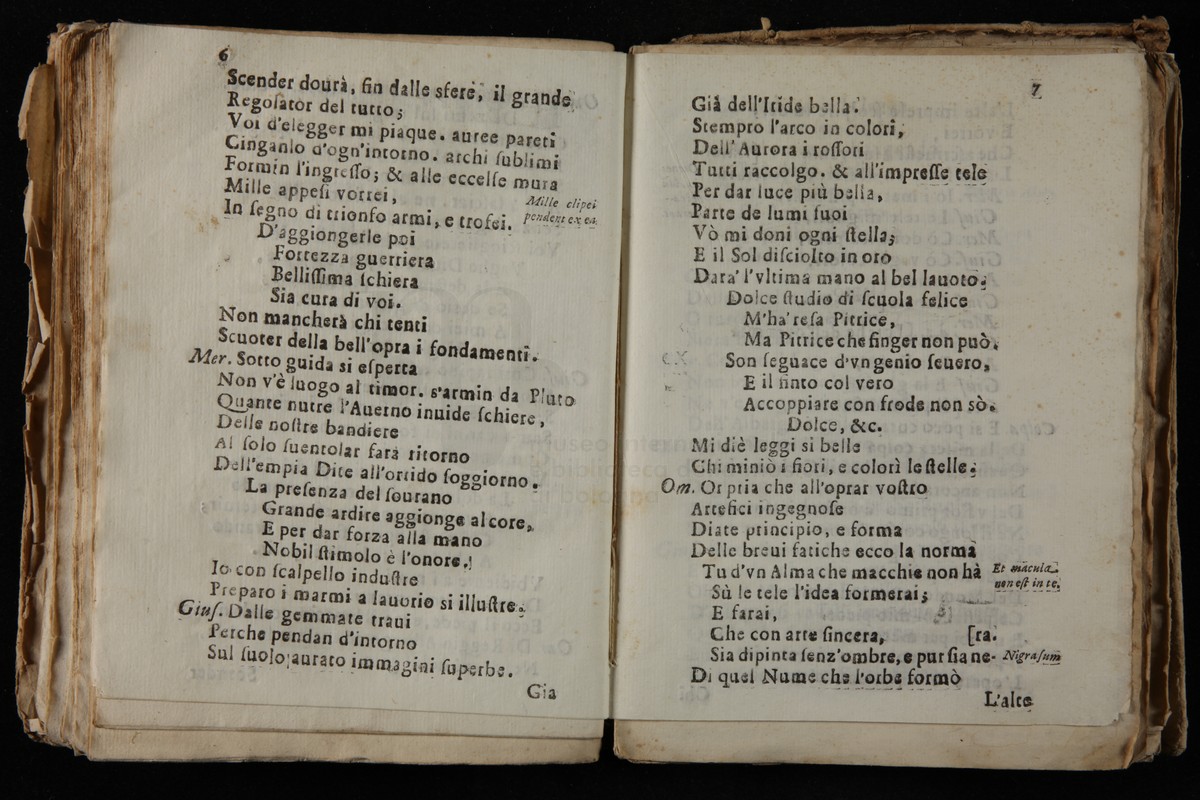 6
Scender dourà, fin dalle sfere, il grande
Regolator del tutto;
Voi d'elegger mi piaque. auree pareti
Cinganlo d'ogn'intorno. archi ſublimi
Formin l'ingreſſo; & alle eccelſe mura
Mille appeſi vorrei,
Mille clipei
In ſegno di trionfo armi, e trofei.
pendent ex ea
D'aggiongerle poi
Fortezza guerriera
Belliſſima ſchiera
Sia cura di voi.
Non mancherà chi tenti
Scuoter della bell'opra i fondamenti.
Mer. Sotto guida si eſperta
Non v'è luogo al timor. s'armin da Pluto
Quante nutre l'Auerno inuide ſchiere,
Delle noſtre bandiere
Al ſolo ſuentolar farà ritorno
Dell'empia Dite all'orrido ſoggiorno.
La preſenza del ſourano
Grande ardire aggionge al core,
E per dar forza alla mano
Nobil ſtimolo è l'onore.
Io con ſcalpello induſtre
Preparo i marmi a lauorio si illuſtre.
Giuſ. Dalle gemmate traui
Perche pendan d'intorno
Sul ſuolo aurato immagini ſuperbe.
Gia
7
Già dell'Iride bella.
Stempro l'arco in colori,
Dell'Aurora i roſſori
Tutti raccolgo. & all'impreſſe tele
Per dar luce più bella,
Parte de lumi ſuoi
Vò mi doni ogni ſtella;
E il Sol diſciolto in oro
Dara' l'vltima mano al bel lauoro.
Dolce ſtudio di ſcuola felice
M'ha' reſa Pittrice,
Ma Pittrice che finger non può.
Son ſeguace d'vn genio ſeuero,
E il finto col vero
Accoppiare con frode non sò.
Dolce, &c.
Mi diè leggi si belle
Chi miniò i fiori, e colorì le ſtelle.
Om. Or pria che all'oprar voſtro
Artefici ingegnoſe
Diate principio, e forma
Delle breui fatiche ecco la norma
Tu d'vn Alma che macchie non hà
Et macula
Sù le tele l'idea formerai;
non eſt in te.
E farai,
Che con arte ſincera,
[ra.
Sia dipinta ſenz'ombre, e pur ſia ne-
Nigra ſum
Di quel Nume che l'orbe formò
L'alte